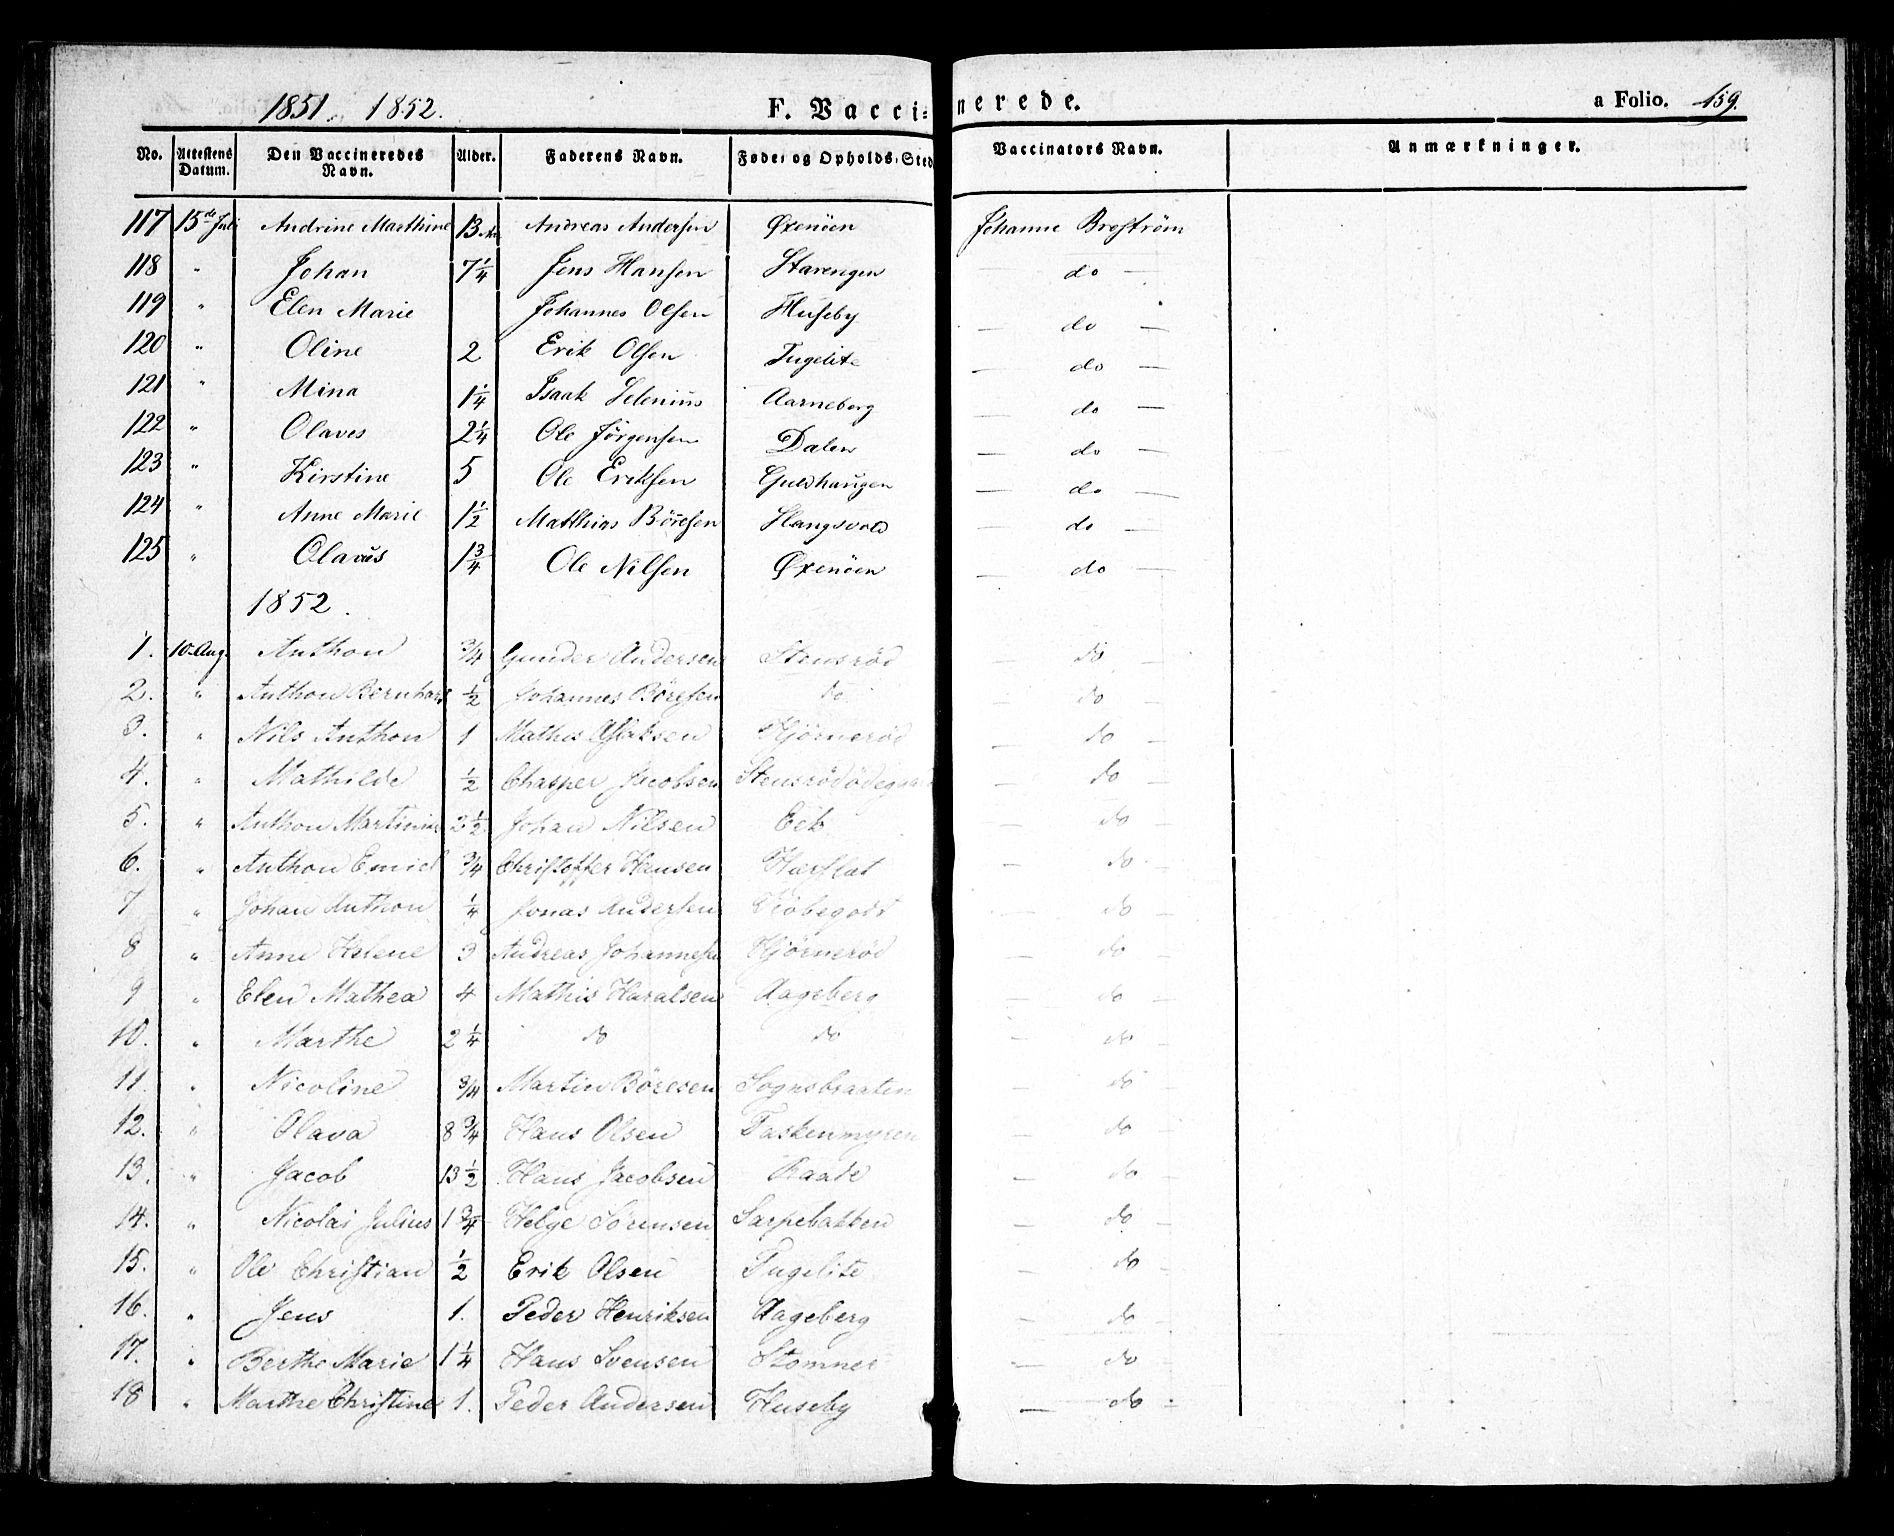 1851. 1852. F. Vaccinerede. a Folio. 159.
No. Attestens Datum. Den Vaccineredes Navn. Alder. Faderens Navn. Føde- og Opholds-Sted Vaccinators Navn. Anmærkninger.
117 15de Juli Andrine Marthine 13 Andreas Andersen Øxenöen Johanne Broström
118 " Johan 7 1/4 Jens Hansen Starengen — do —
119 " Elen Marie Johannes Olsen Huseby — do —
120 " Oline 2 Erik Olsen Fugelite — do —
121 " Mina 1 1/4 Isaak Selenius Aarneberg — do —
122 " Olaves 2 1/4 Ole Jörgensen Dalen — do —
123 " Kirstine 5 Ole Eriksen Guldhaugen — do —
124 " Anne Marie 1 1/2 Matthias Böresen Slangsvold — do —
125 " Olavus 1 3/4 Ole Nilsen Øxenöen — do —
1852.
1. 10. Aug. Anthon 3/4 Gunder Andersen Stensröd — do —
2. " Anthon Bernhard 1/2 Johannes Böresen do — do —
3. " Nils Anthon 1 Mathis Aslaksen Hjörneröd — do —
4. " Mathilde 1/2 Chasper Jacobsen Stensrödödegaard — do —
5. " Anthon Martinius 2 1/2 Johan Nilsen Eek — do —
6. " Anthon Emiel 3/4 Christoffer Hansen Hasflat — do —
7 " Johan Anthon 1/4 Jonas Andersen — do —
8 " Anne Helene 3 Andreas Johannesen Hjörneröd — do —
9 " Elen Mathea 4 Mathis Haralsen Aageberg — do —
10. " Marthe 2 1/4 do do — do —
11. " Nicoline 3/4 Martin Böresen Sognsbraaten — do —
12. " Olava 8 3/4 Hans Olsen Taskenmyren — do —
13. " Jacob 13 1/2 Hans Jacobsen Raade — do —
14. " Nicolai Julius 1 3/4 Helge Sörensen Sarpebakken — do —
15. " Ole Christian 1/2 Erik Olsen Fugelite — do —
16. " Jens 1. Peder Henriksen Aageberg — do —
17. " Berthe Marie 1 1/4 Hans Svensen Stomner — do —
18 " Marthe Christine 1. Peder Andersen Huseby — do —